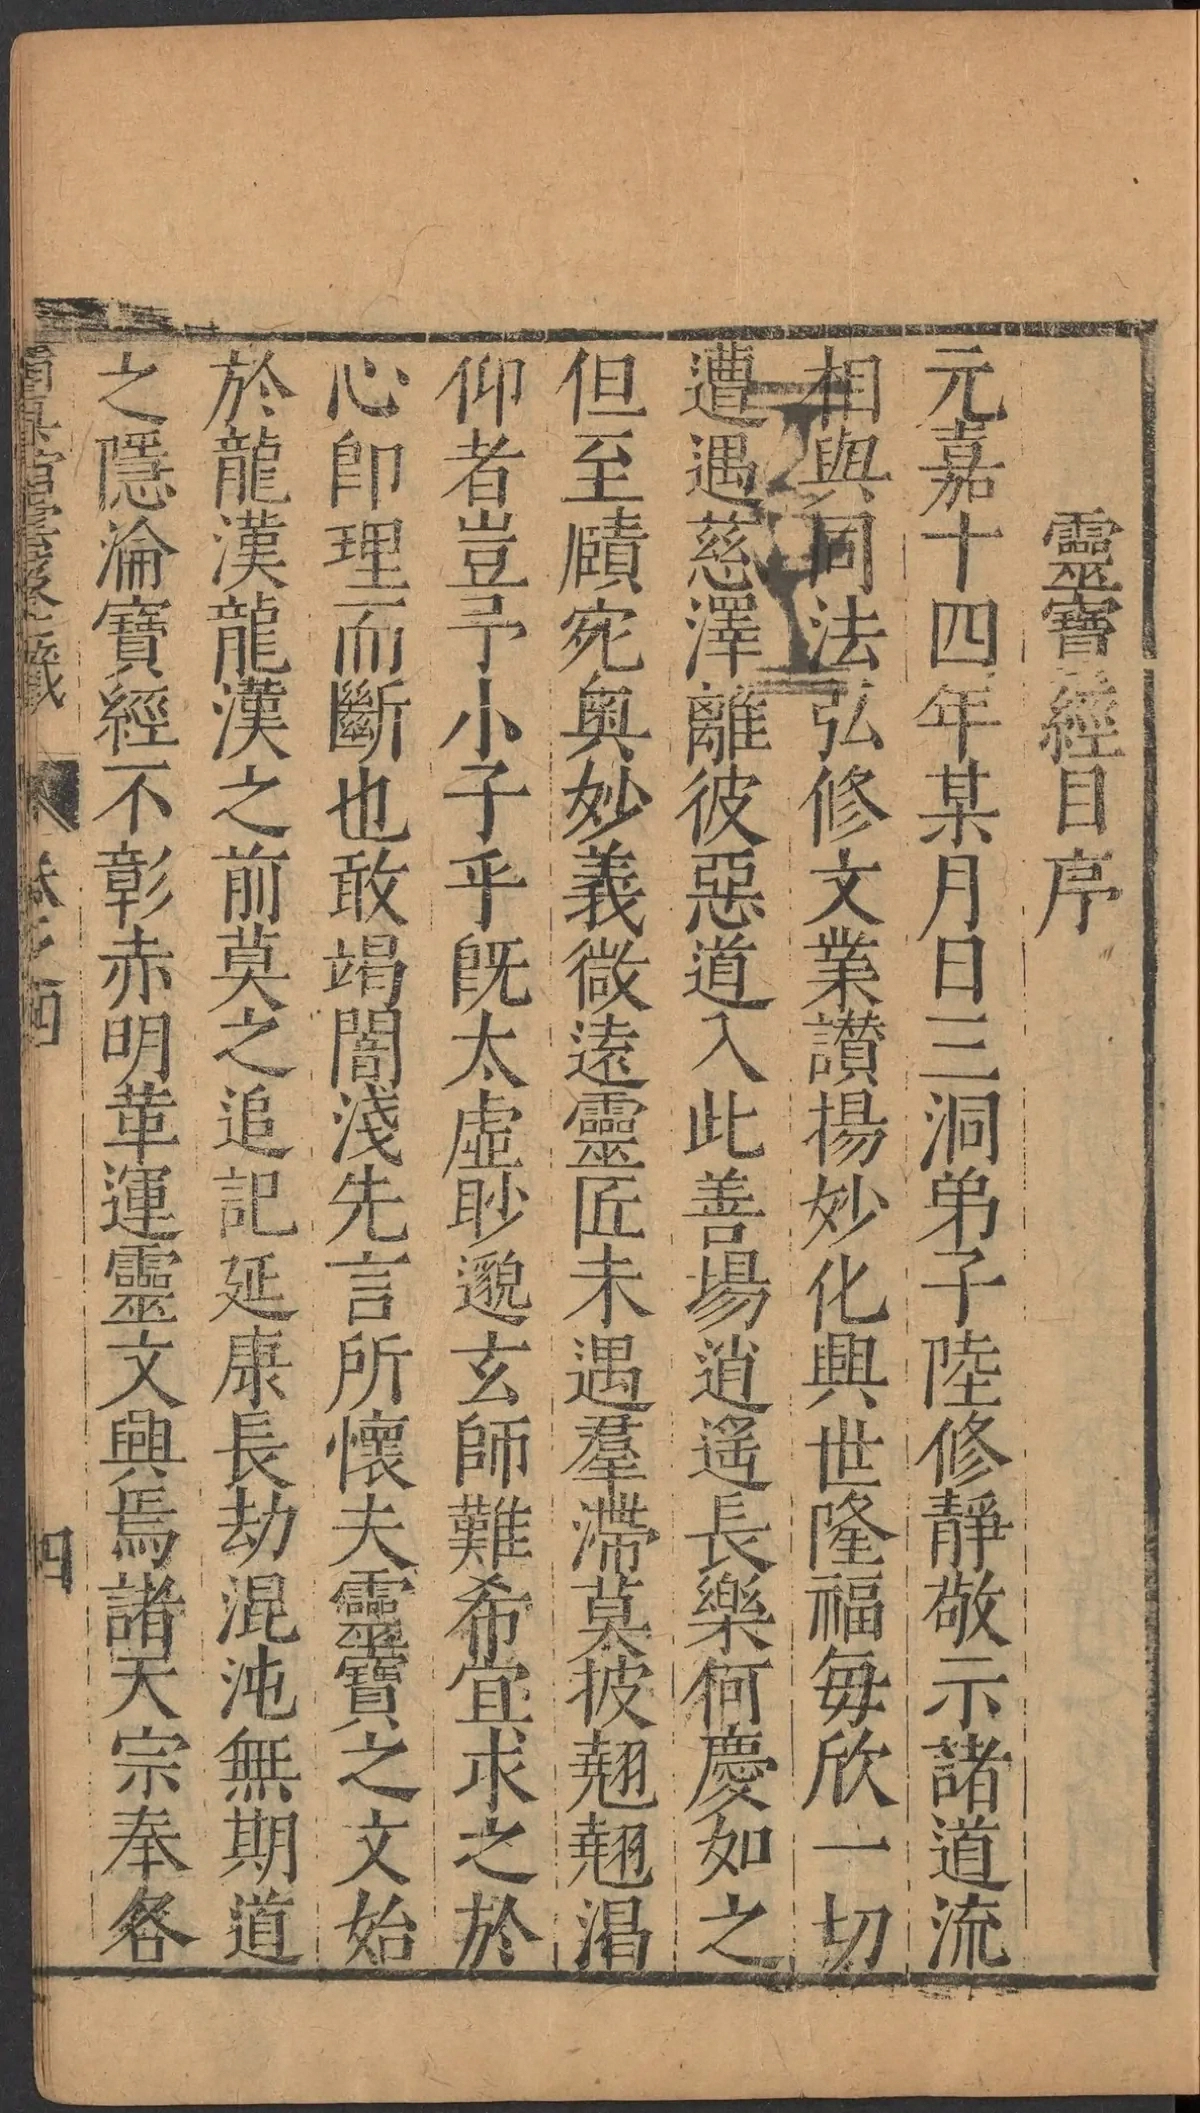 靈寶經目序
元嘉十四年某月日三洞弟子陸修靜敬示諸道流
相與同法弘修文業讃揚妙化興世隆福每欣一切
遭遇慈澤離彼惡道入此善場逍遥長樂何慶如之
但至賾宛奥妙義微遠靈匠未遇羣滯莫披翹翹渴
仰者豈予小子乎既太虚眇邈玄師難希宜求之於
心即理而斷也敢竭闇淺先言所懷夫靈寶之文始
於龍漢龍漢之前莫之追記延康長劫混沌無期道
之隱淪寶經不彰赤明革運靈文興焉諸天宗奉各
卷之四
四